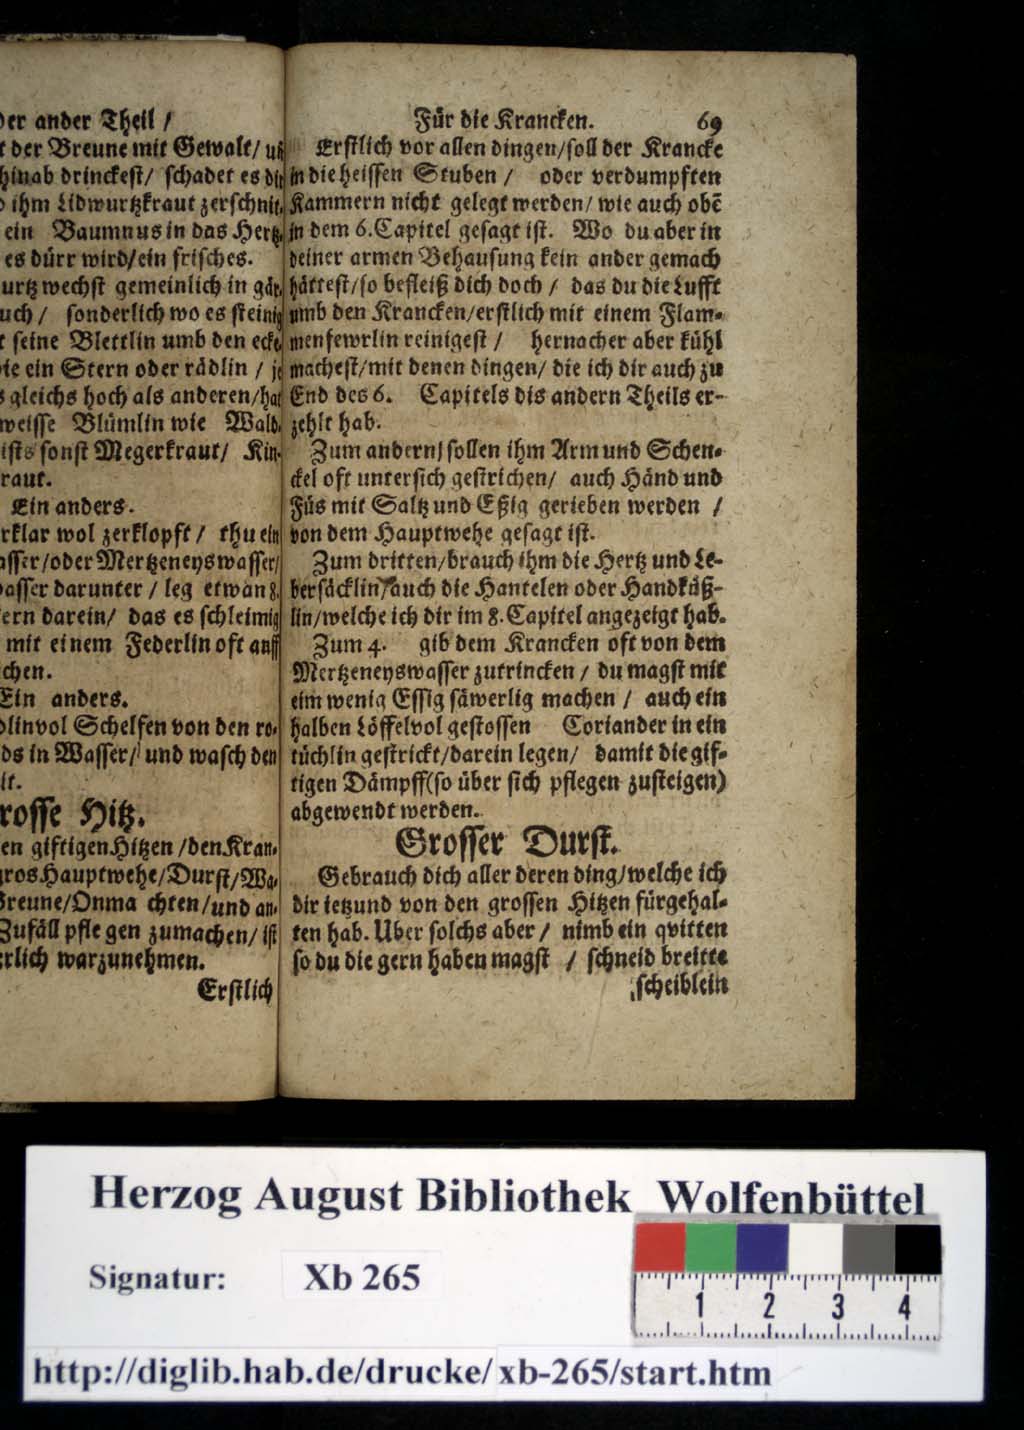 der ander Theil /
t der Breune mit Gewalt / uñ
hinab drinckest / schadet es dir
ihm Lidwurtzkraut zerschnit-
ein Baumnus in das Hertz,
es dürr wird / ein frisches.
urtz wechst gemeinlich in gär,
uch / sonderlich wo es steinig
t seine Blettlin umb den ecke,
ie ein Stern oder rädlin / je
s gleichs hoch als anderen / hat
weisse Blümlin wie Wald,
ists sonst Megerkraut / Kin-
raut.
Ein anders.
rklar wol zerklopft / thu ein
asser / oder Mertzeneyswasser /
asser darunter / leg etwan 8.
ern darein / das es schleimig
mit einem Federlin oft auff
chen.
Ein anders.
lin vol Schelfen von den ro-
ds in Wasser / und wasch den
it.
rosse Hitz.
en giftigen Hitzen / den Kran-
gros Hauptwehe / Durst / Wa-
Breune / Onma chten / und an-
Zufäll pfle gen zumachen / ist
rlich warzunehmen.
Erstlich
Für die Krancken. 69
Erstlich vor allen dingen / soll der Krancke
in die heissen Stuben / oder verdumpften
Kammern nicht gelegt werden / wie auch obē
in dem 6. Capitel gesagt ist. Wo du aber in
deiner armen Behausung kein ander gemach
hättest / so befleiß dich doch / das du die Lufft
umb den Krancken / erstlich mit einem Flam-
menfewrlin reinigest / hernacher aber kühl
machest / mit denen dingen / die ich dir auch zu
End des 6. Capitels dis andern Theils er-
zehlt hab.
Zum andern / sollen ihm Arm und Schen-
ckel oft untersich gestrichen / auch Händ und
Füs mit Saltz und Eßig gerieben werden /
von dem Hauptwehe gesagt ist.
Zum dritten / brauch ihm die Hertz und Le-
bersäcklin / auch die Hantelen oder Handkäß-
lin / welche ich dir im 8. Capitel angezeigt hab.
Zum 4. gib dem Krancken oft von dem
Mertzeneyswasser zutrincken / du magst mit
eim wenig Essig säwerlig machen / auch ein
halben Löffelvol gestossen Coriander in ein
tüchlin gestrickt / darein legen / damit die gif-
tigen Dämpff (so über sich pflegen zusteigen)
abgewendt werden.
Grosser Durst.
Gebrauch dich aller deren ding / welche ich
dir ietzund von den grossen Hitzen fürgehal-
ten hab. Uber solchs aber / nimb ein qvitten
so du die gern haben magst / schneid breitte
scheiblein
Herzog August Bibliothek Wolfenbüttel
Signatur: Xb 265
1 2 3 4
http://diglib.hab.de/drucke/xb-265/start.htm